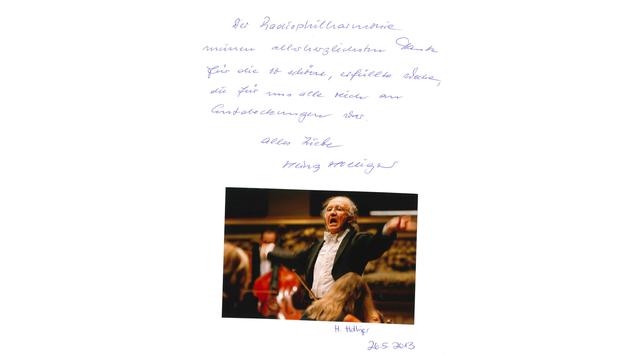 Der Radiophilharmonie
meinen allerherzlichsten Dank
für die so schöne, erfüllte Woche,
die für uns alle reich an
Entdeckungen war
Alles Liebe
Heinz Holliger
H. Holliger
26.5.2013